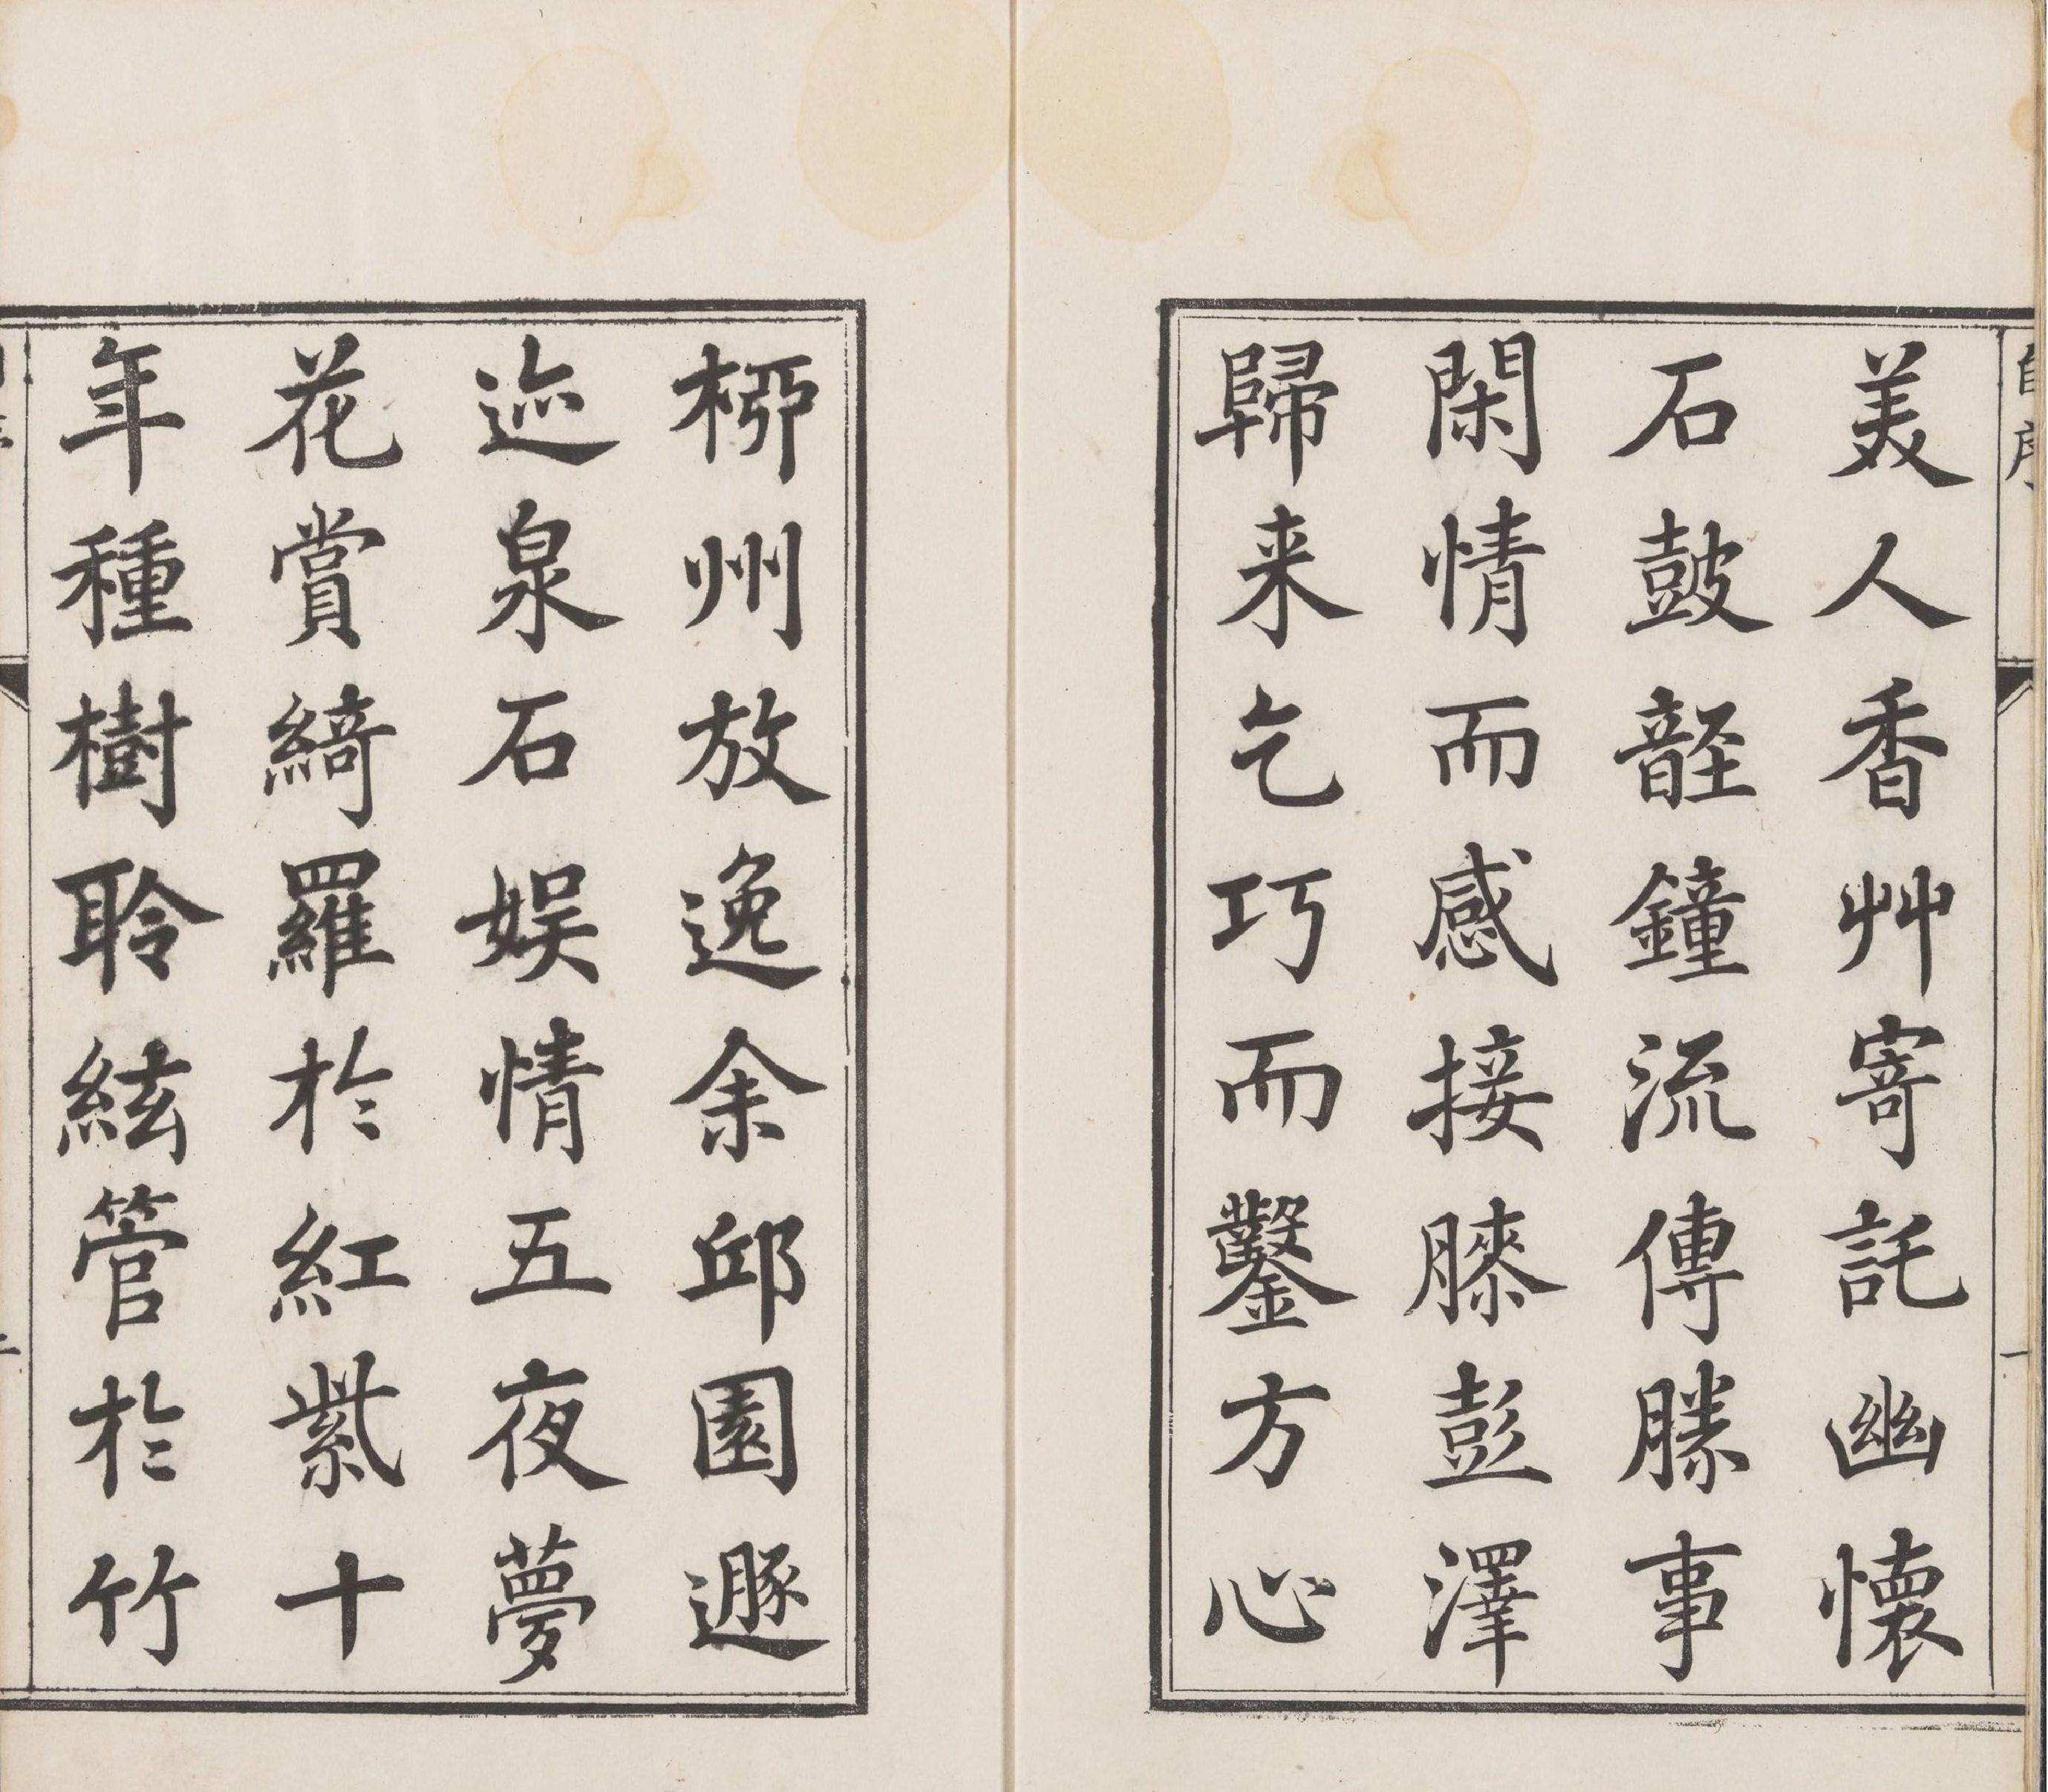 自序
一
美人香艸寄託幽懷
石鼓𫖇鐘流傳勝事
閑情而感接膝彭澤
歸来乞巧而鑿方心
桺州放逸余邱園遯
迹泉石娱情五夜夢
花賞綺羅於紅紫十
年種樹聆絃管於竹